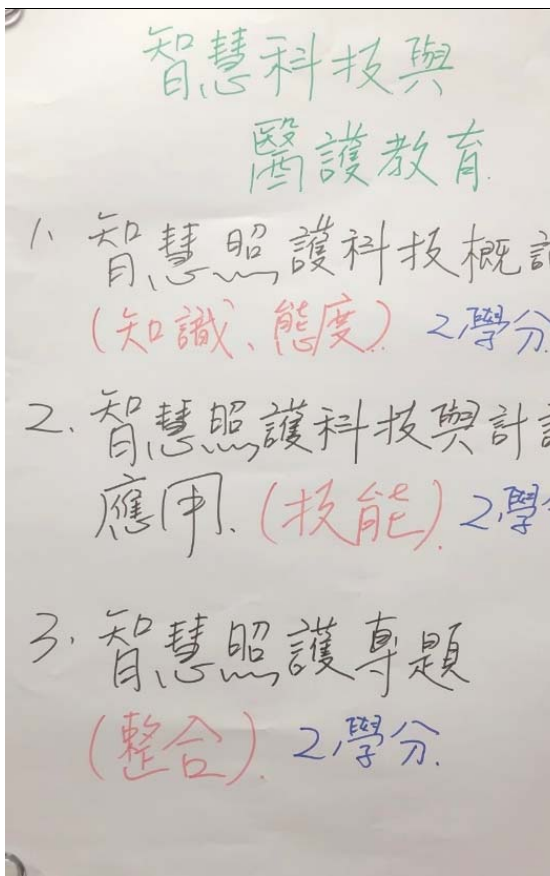 智慧科技與
醫護教育.
1、智慧照護科技概
(知識、態度). 2學分.
2. 智慧照護科技與計
應用. (技能). 2學
3. 智慧照護專題
(整合). 2學分.